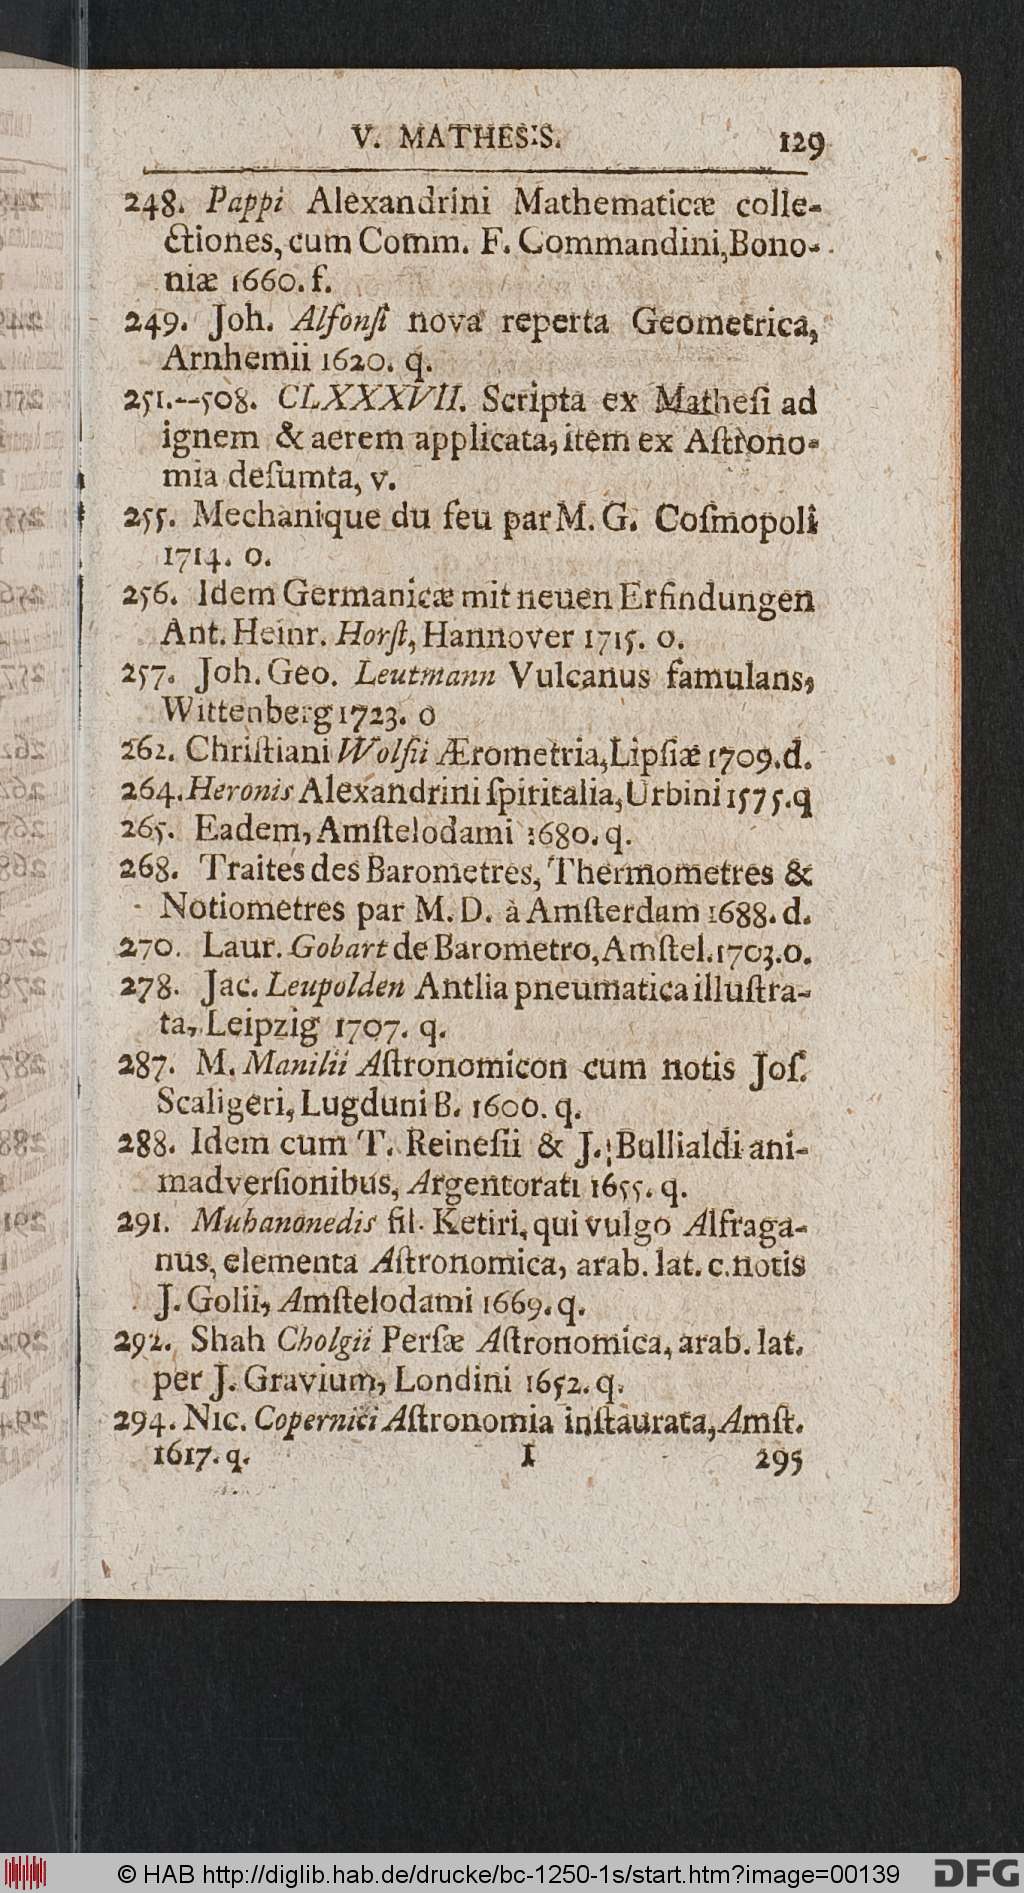 V. MATHESIS. 129
248. Pappi Alexandrini Mathematicæ colle-
ctiones, cum Comm. F. Commandini, Bono-
niæ 1660. f.
249. Joh. Alfonſi nova reperta Geometrica,
Arnhemii 1620. q.
251.--508. CLXXXVII. Scripta ex Matheſi ad
ignem & aerem applicata, item ex Aſtrono-
mia deſumta, v.
255. Mechanique du feu par M. G. Coſmopoli
1714. o.
256. Idem Germanicæ mit neuen Erfindungen
Ant. Heinr. Horſt, Hannover 1715. o.
257. Joh. Geo. Leutmann Vulcanus famulans,
Wittenberg 1723. o
262. Chriſtiani Wolfii Ærometria, Lipſiæ 1709. d.
264. Heronis Alexandrini ſpiritalia, Urbini 1575. q
265. Eadem, Amſtelodami 1680. q.
268. Traites des Barometres, Thermometres &
Notiometres par M. D. à Amſterdam 1688. d.
270. Laur. Gobart de Barometro, Amſtel. 1703. o.
278. Jac. Leupolden Antlia pneumatica illuſtra-
ta, Leipzig 1707. q.
287. M. Manilii Aſtronomicon cum notis Joſ.
Scaligeri, Lugduni B. 1600. q.
288. Idem cum T. Reineſii & J. Bullialdi ani-
madverſionibus, Argentorati 1655. q.
291. Muhanonedis fil. Ketiri, qui vulgo Alfraga-
nus, elementa Aſtronomica, arab. lat. c. notis
J. Golii, Amſtelodami 1669. q.
292. Shah Cholgii Perſæ Aſtronomica, arab. lat.
per J. Gravium, Londini 1652. q.
294. Nic. Copernici Aſtronomia inſtaurata, Amſt.
1617. q. I 295
© HAB http://diglib.hab.de/drucke/bc-1250-1s/start.htm?image=00139 DFG